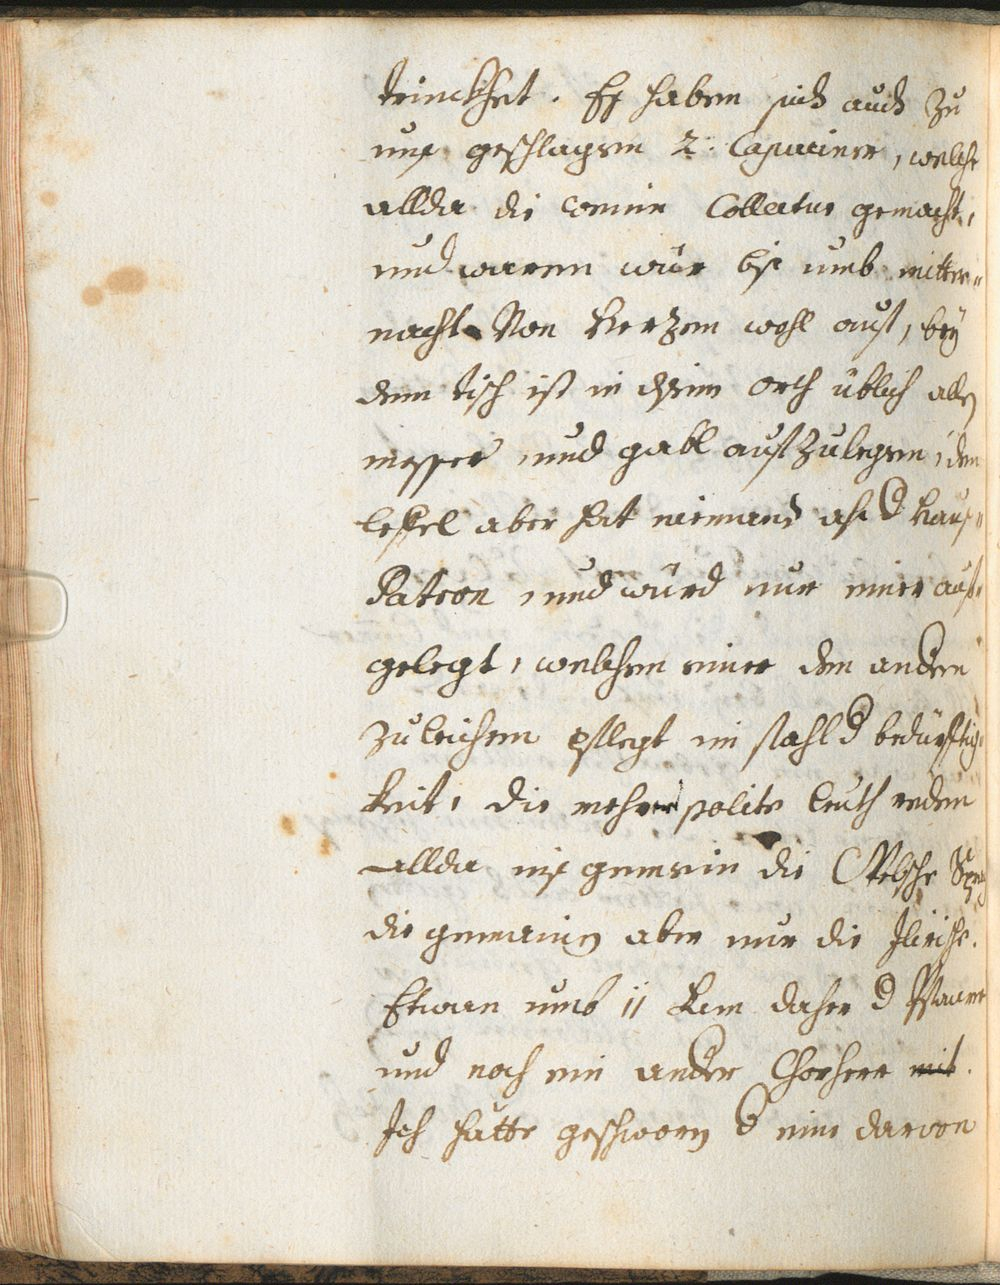 trinckhet. Eß haben sich auch zu
unß geschlagen 2. Capuciner, welche
allda die wein Collectur gemacht,
und waren wür biß umb mitter-
nacht Von Herzen wohl auf, bey
dem tisch ist in disem orth üblich alles
messer und gabl aufzulegen, den
leffel aber hat niemand alß d Hauß-
Patron, und würd nur einer auf-
gelegt, welchen einer dem andern
zuleichen pflegt im fahl d bedürfftig-
keit, die mehrer polite leuth reden
allda inß gemein die Welsche Sprach
die gemaine aber nur die Jlirische.
Etwan umb 11 kam daher d Pfarrer
und noch ein ander Chorherr mit.
Jch hätte geschworn d eine darvon